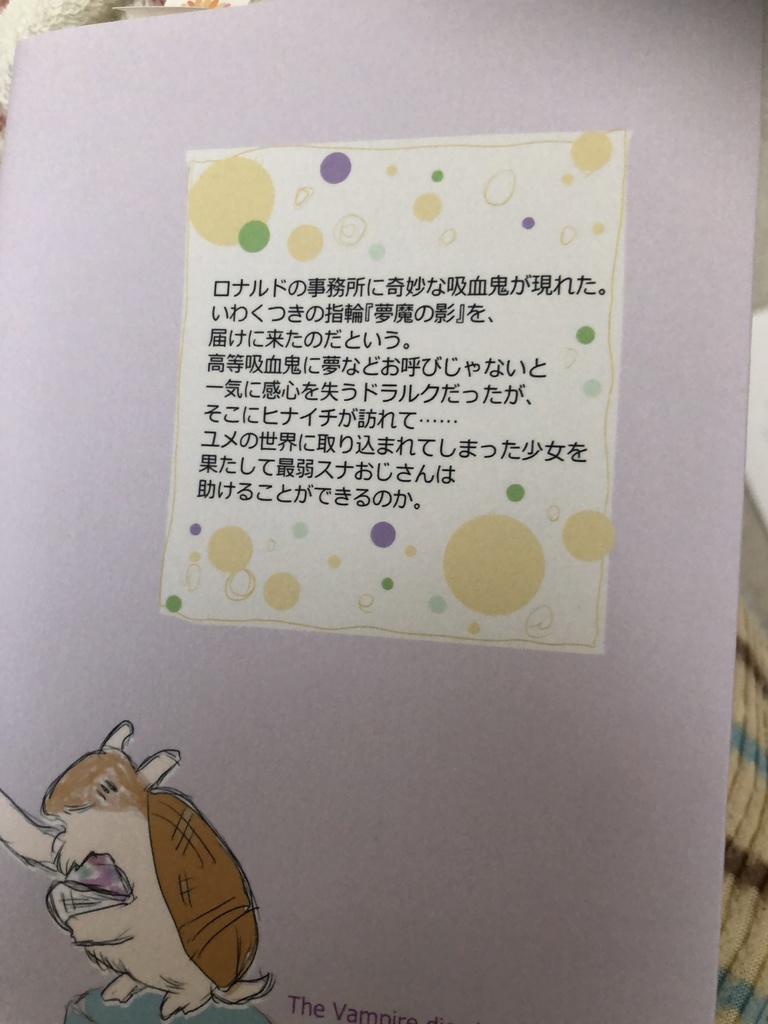 ロナルドの事務所に奇妙な吸血鬼が現れた。
いわくつきの指輪『夢魔の影』を、
届けに来たのだという。
高等吸血鬼に夢などお呼びじゃないと
一気に感心を失うドラルクだったが、
そこにヒナイチが訪れて……
ユメの世界に取り込まれてしまった少女を
果たして最弱スナおじさんは
助けることができるのか。
The Vampire